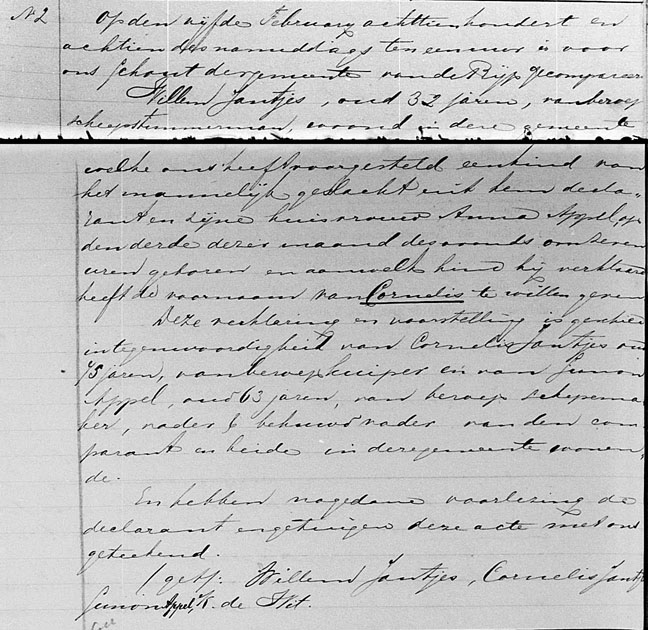 N 2 Op den vijfde February achttienhonderd en
achtien des namiddags ten een uur is voor
ons Schout der gemeente van de Rijp gecompareer
Willem Jantjes, oud 32 jaren, van beroep
scheepstimmerman, woond in deze gemeente
welke ons heeft voorgesteld een kind van
het mannelijk geslacht uit hem decla-
rant en zijne huisvrouw Anna Appel, op
den derde dezer maand des avonds om zeven
uren geboren en aan welk kind hij verklaard
heeft de voornaam van Cornelis te willen geven
Deze verklaring en voorstelling is geschied
in tegenwoordigheid van Cornelis Jantjes oud
75 jaren, van beroep kuiper en van Simon
Appel, oud 63 jaren, van beroep schepema
ker, vader & behuwd vader van den com
parant en beide in deze gemeente wonen,
de.
En hebben na gedane voorlezing de
declarant en getuigen deze acte met ons
geteekend.
(get): Willem Jantjes, Cornelis Jantj
Simon Appel, K. de Wit.